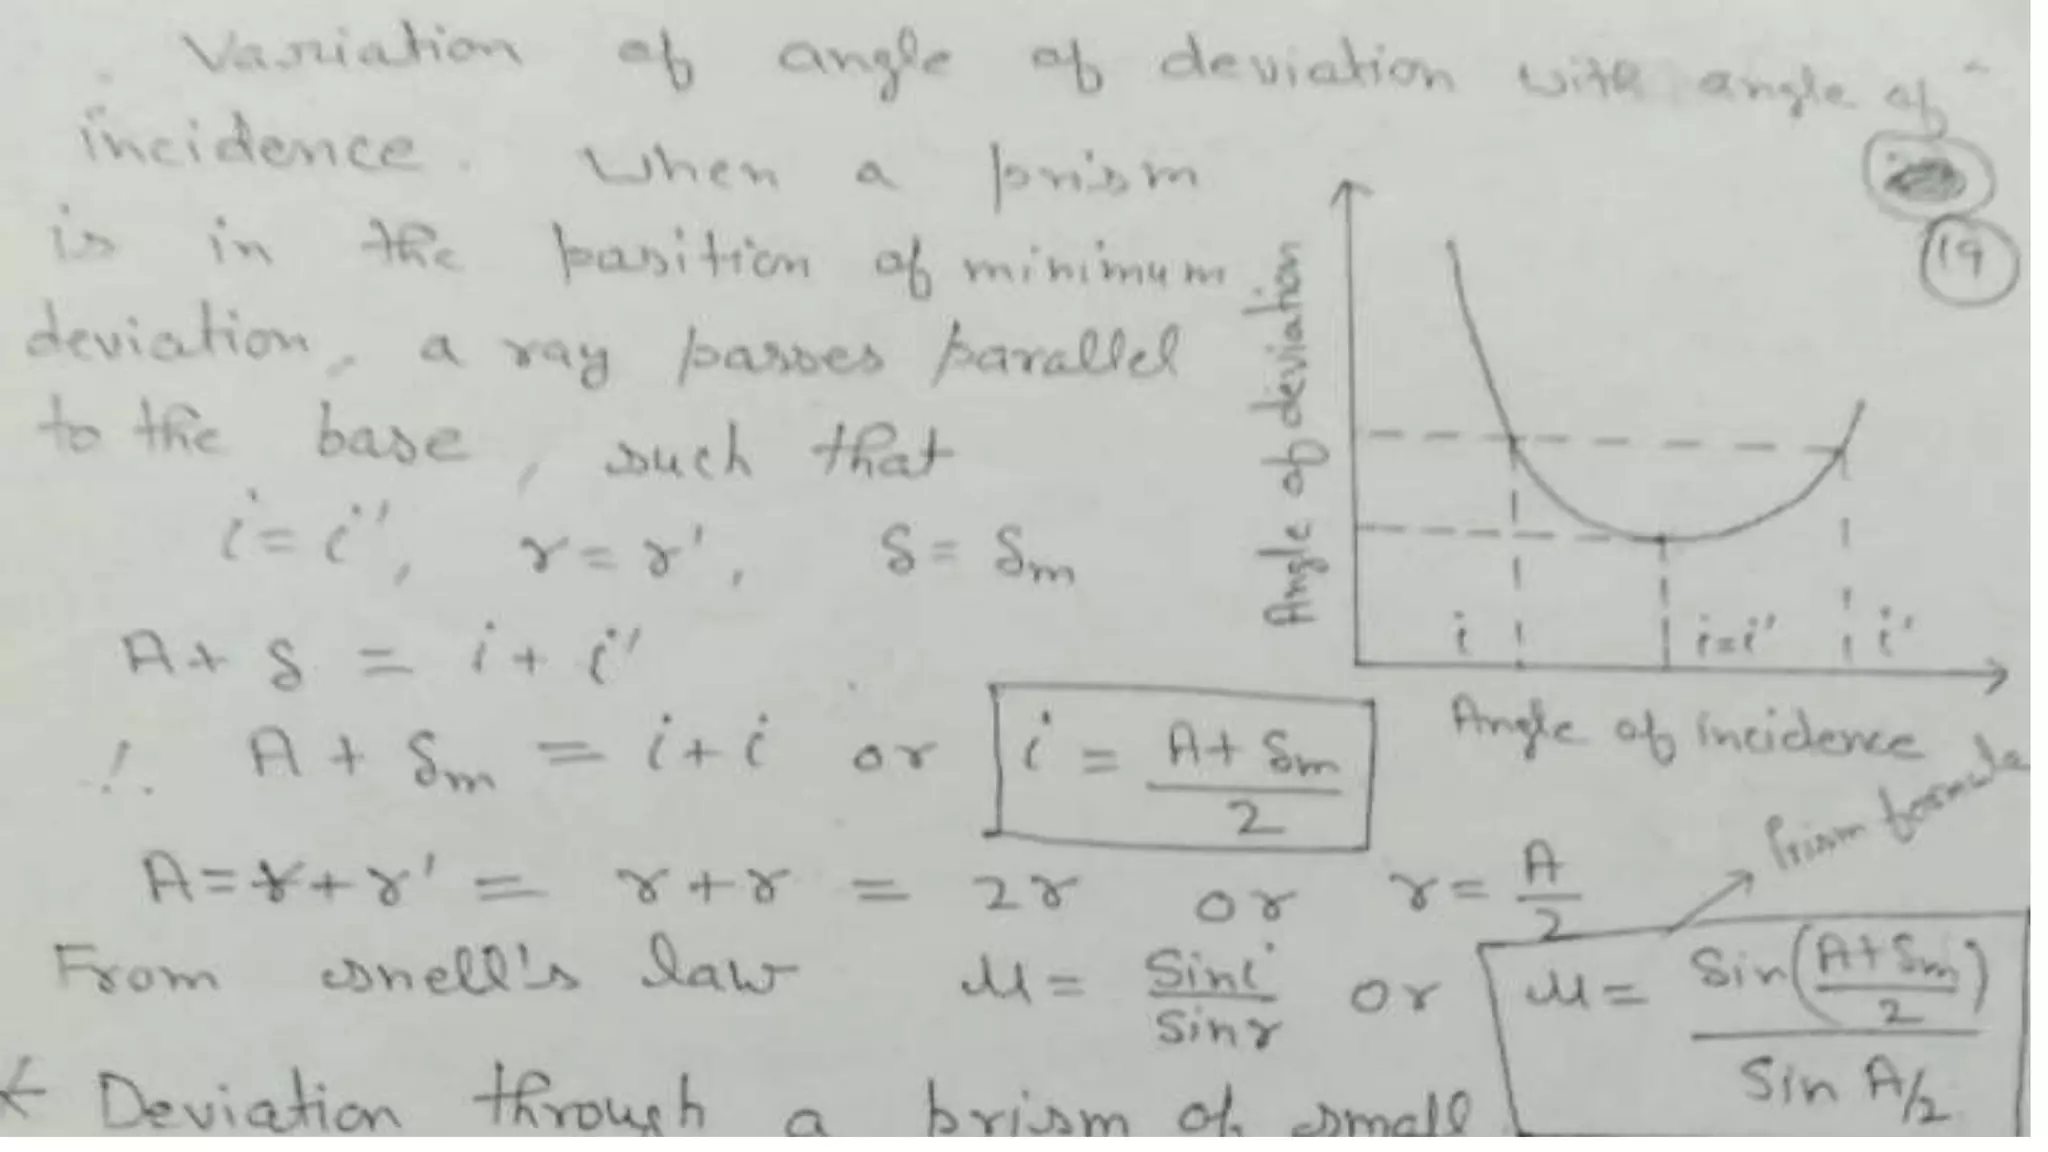 Variation of angle of deviation with angle of
incidence. When a prism
is in the position of minimum
deviation, a ray passes parallel
to the base, such that
i = i', r = r', δ = δm
A + δ = i + i'
∴ A + δm = i + i or i = (A + δm)/2
A = r + r' = r + r = 2r or r = A/2
From snell's law μ = Sin i / Sin r or μ = Sin((A + δm)/2) / Sin A/2
Prism formula
* Deviation through a prism of small
19
Angle of deviation
i i=i' i'
Angle of incidence